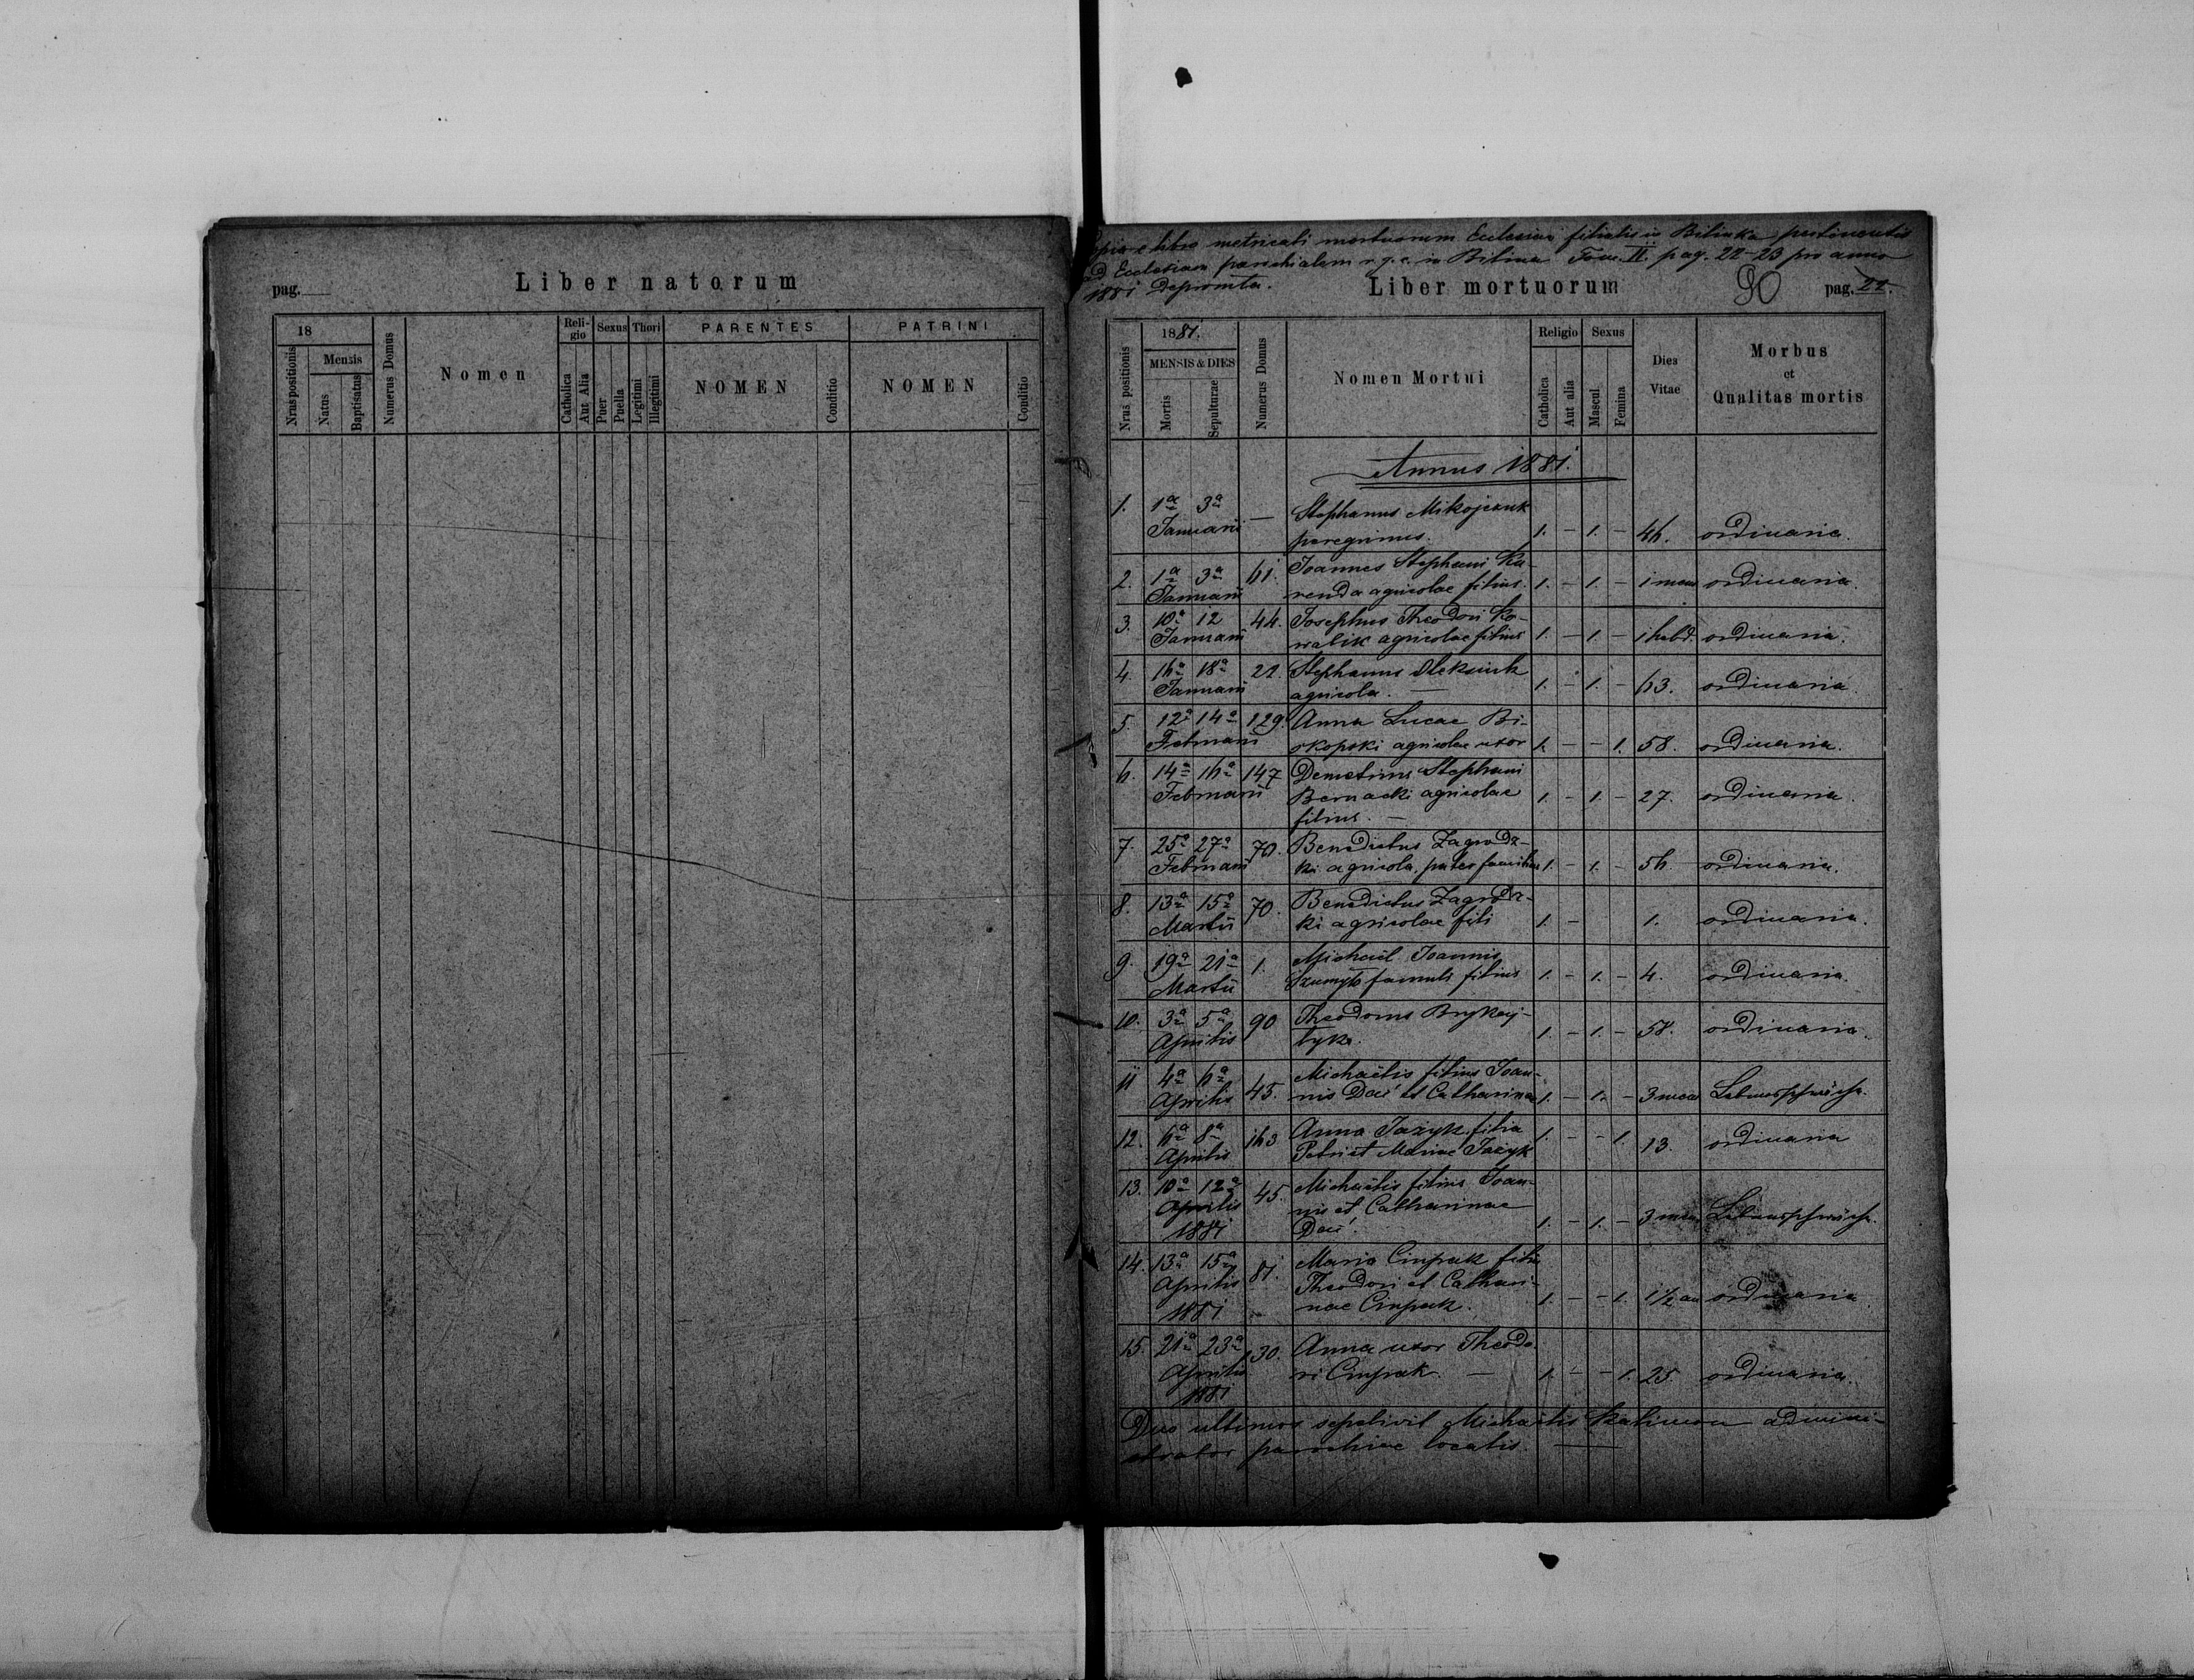 pag.
Liber natorum
18
Nrus positionis
Mensis
Natus
Baptisatus
Numerus Domus
Nomen
Religio
Catholica
Aut Alia
Sexus
Puer
Puella
Thori
Legitimi
Illegitimi
PARENTES
NOMEN
Conditio
PATRINI
NOMEN
Conditio
libro metricali mortuorum Ecclesiae filialis in Bilinka pertinentis
ad Ecclesiam parochialem r. g. c. in Bilina Tom. II. pag. 22-23 pro anno
1881 depromta.
Liber mortuorum
90
pag. 22.
Nrus positionis
1881.
MENSIS & DIES
Mortis
Sepulturae
Numerus Domus
Nomen Mortui
Religio
Catholica
Aut alia
Sexus
Mascul
Femina
Dies
Vitae
Morbus
et
Qualitas mortis
Annus 1881.
1. 1a 3a — Stephanus Mikojczuk
Januarii peregrinus. 1. - 1. - 46. ordinaria.
2. 1a 3a 61. Joannes Stephani Ku-
Januarii renda agricolae filius. 1. - 1. - 1 mens ordinaria.
3. 10a 12 44. Josephus Theodori Ko-
Januarii walik agricolae filius 1. - 1. - 1 hebd. ordinaria.
4. 16a 18a 22. Stephanus Oleksiuk
Januarii agricola. — 1. - 1. - 63. ordinaria.
5. 12a 14a 129. Anna Lucae Bi-
Februarii skopski agricolae uxor 1. - - 1. 58. ordinaria.
6. 14a 16a 147 Demetrius Stephani
Februarii Bernacki agricolae 1. - 1. - 27. ordinaria.
filius. —
7. 25a 27a 70. Benedictus Zagrodz-
Februarii ki agricola, pater familiae 1. - 1. - 56 ordinaria.
8. 13a 15a 70. Benedictus Zagrodz-
Martii ki agricolae fili 1. - 1. ordinaria.
9. 19a 21a 1. Michaël Joannis
Martii famuli filius 1. - 1. - 4. ordinaria.
10. 3a 5a 90 Theodorus
Aprilis 1. - 1. - 58. ordinaria.
11 4a 6a 45. Michaëlis filius Joan-
Aprilis nis Dać et Catharinae 1. - 1. - 3 mens Lebensschwäche.
12. 6a 8a 163 Anna Jażyk filia
Aprilis Petri et Mariae Jażyk 1. - - 1. 13. ordinaria
13. 10a 12a 45. Michaëlis filius Joan-
Aprilis nis et Catharinae
1881 Dać. 1. - 1. - 3 mens Lebensschwäche.
14. 13a 15a 81. Maria Ciupak filia
Aprilis Theodori et Cathari-
1881 nae Ciupak. 1. - - 1. 1 1/2 an ordinaria
15. 21a 23a 130. Anna uxor Theodo-
Aprilis ri Ciupak. — 1. - - 1. 25. ordinaria.
1881
Duo ultimos sepelivit Michaëlis admini-
strator parochiae localis. —